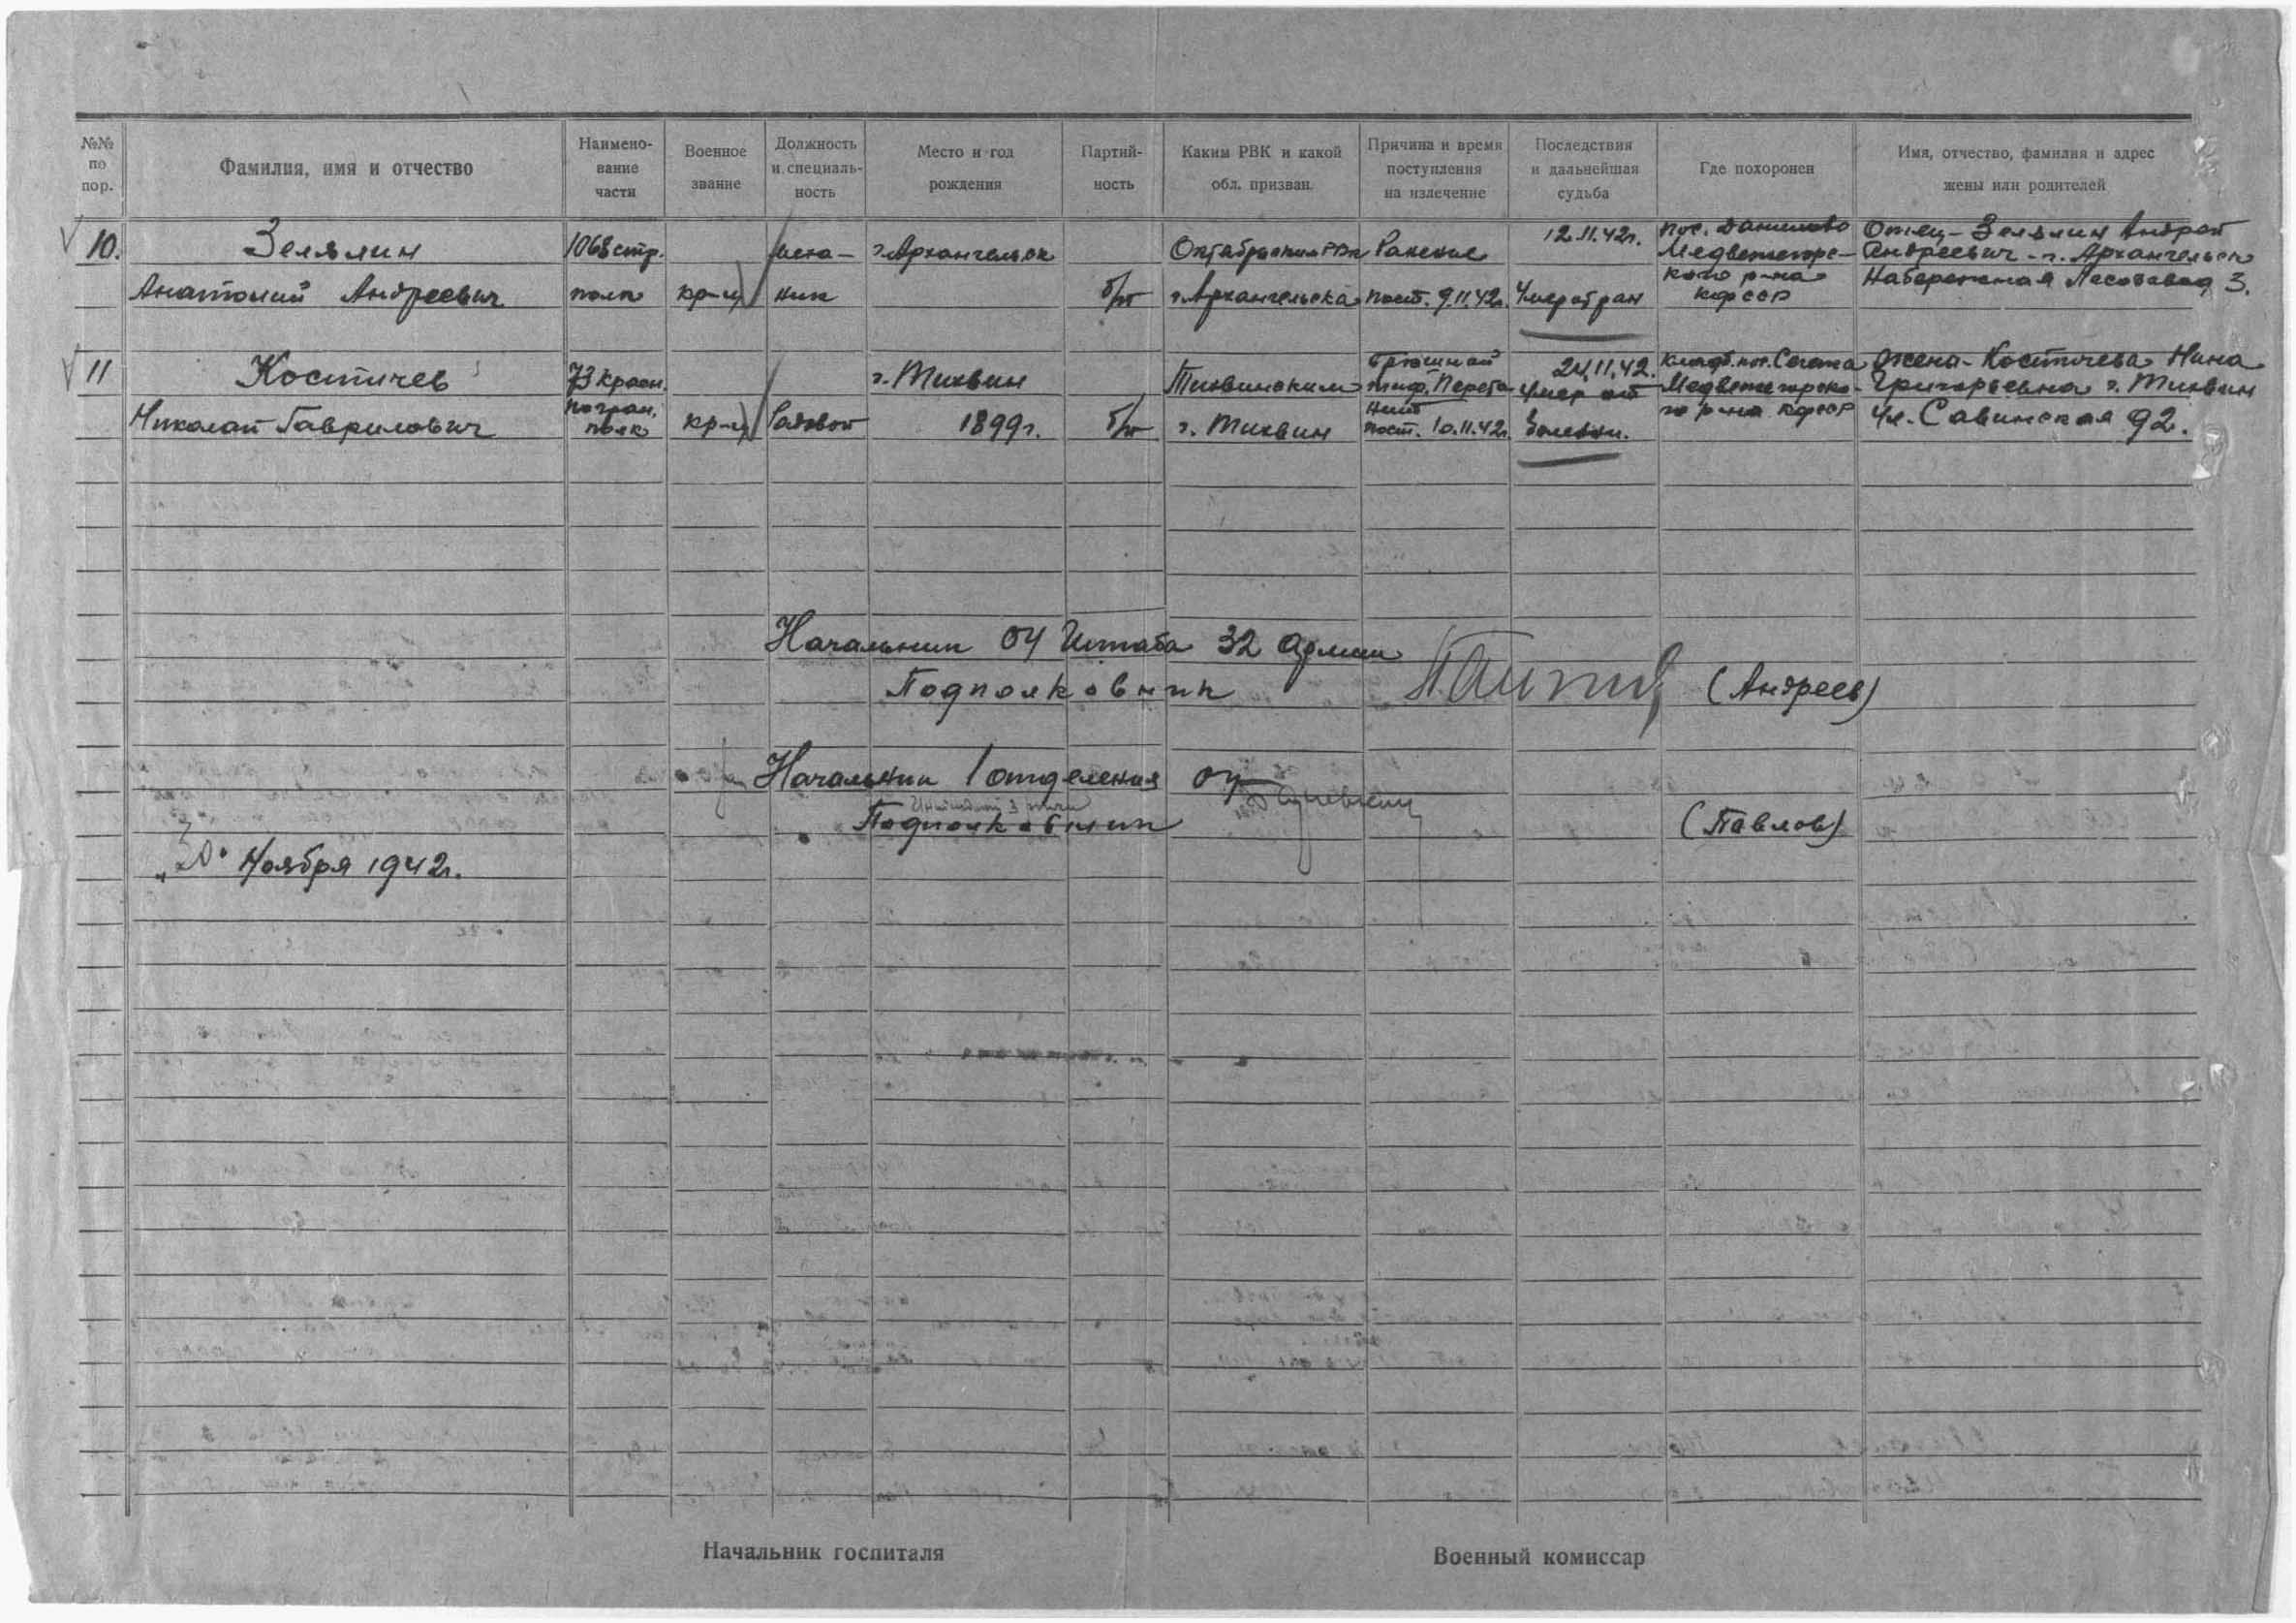 №№ по пор.
Фамилия, имя и отчество
Наимено- вание части
Военное звание
Должность и специаль- ность
Место и год рождения
Партий- ность
Каким РВК и какой обл. призван.
Причина и время поступления на излечение
Последствия и дальнейшая судьба
Где похоронен
Имя, отчество, фамилия и адрес жены или родителей
10.
Зелялин
Анатолий Андреевич
1068 стр.
полк
кр-ц
меха-
ник
г. Архангельск
б/п
Октябрьским РВК
г. Архангельска
Ранение
пост. 9.11.42г.
12.11.42г.
Умер от ран
пос. Данилово
Медвежегорс-
кого р-на
КФССР
Отец - Зелялин Андрей
Андреевич - г. Архангельск
Набережная Лесозавод 3.
11
Костичев
Николай Гаврилович
73 красн.
погран.
полк
кр-ц
Рядовой
г. Тихвин
1899г.
б/п
Тихвинским
г. Тихвин
брюшной
тиф.
пост. 10.11.42г.
24.11.42.
Умер от
болезни.
кладб. пос. Сегежа
Медвежегорско-
го р-на КФССР
Жена - Костичева Нина
Григорьевна г. Тихвин
ул. Савинская 92.
Начальник ОУ Штаба 32 Армии
Подполковник
(Андреев)
Начальник 1 отделения ОУ
Подполковник
(Павлов)
"30" Ноября 1942г.
Начальник госпиталя
Военный комиссар